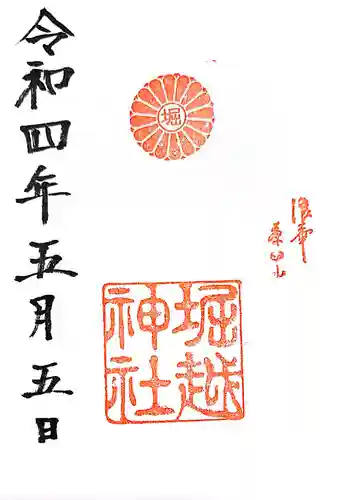 堀
堀越
神社
令和四年五月五日